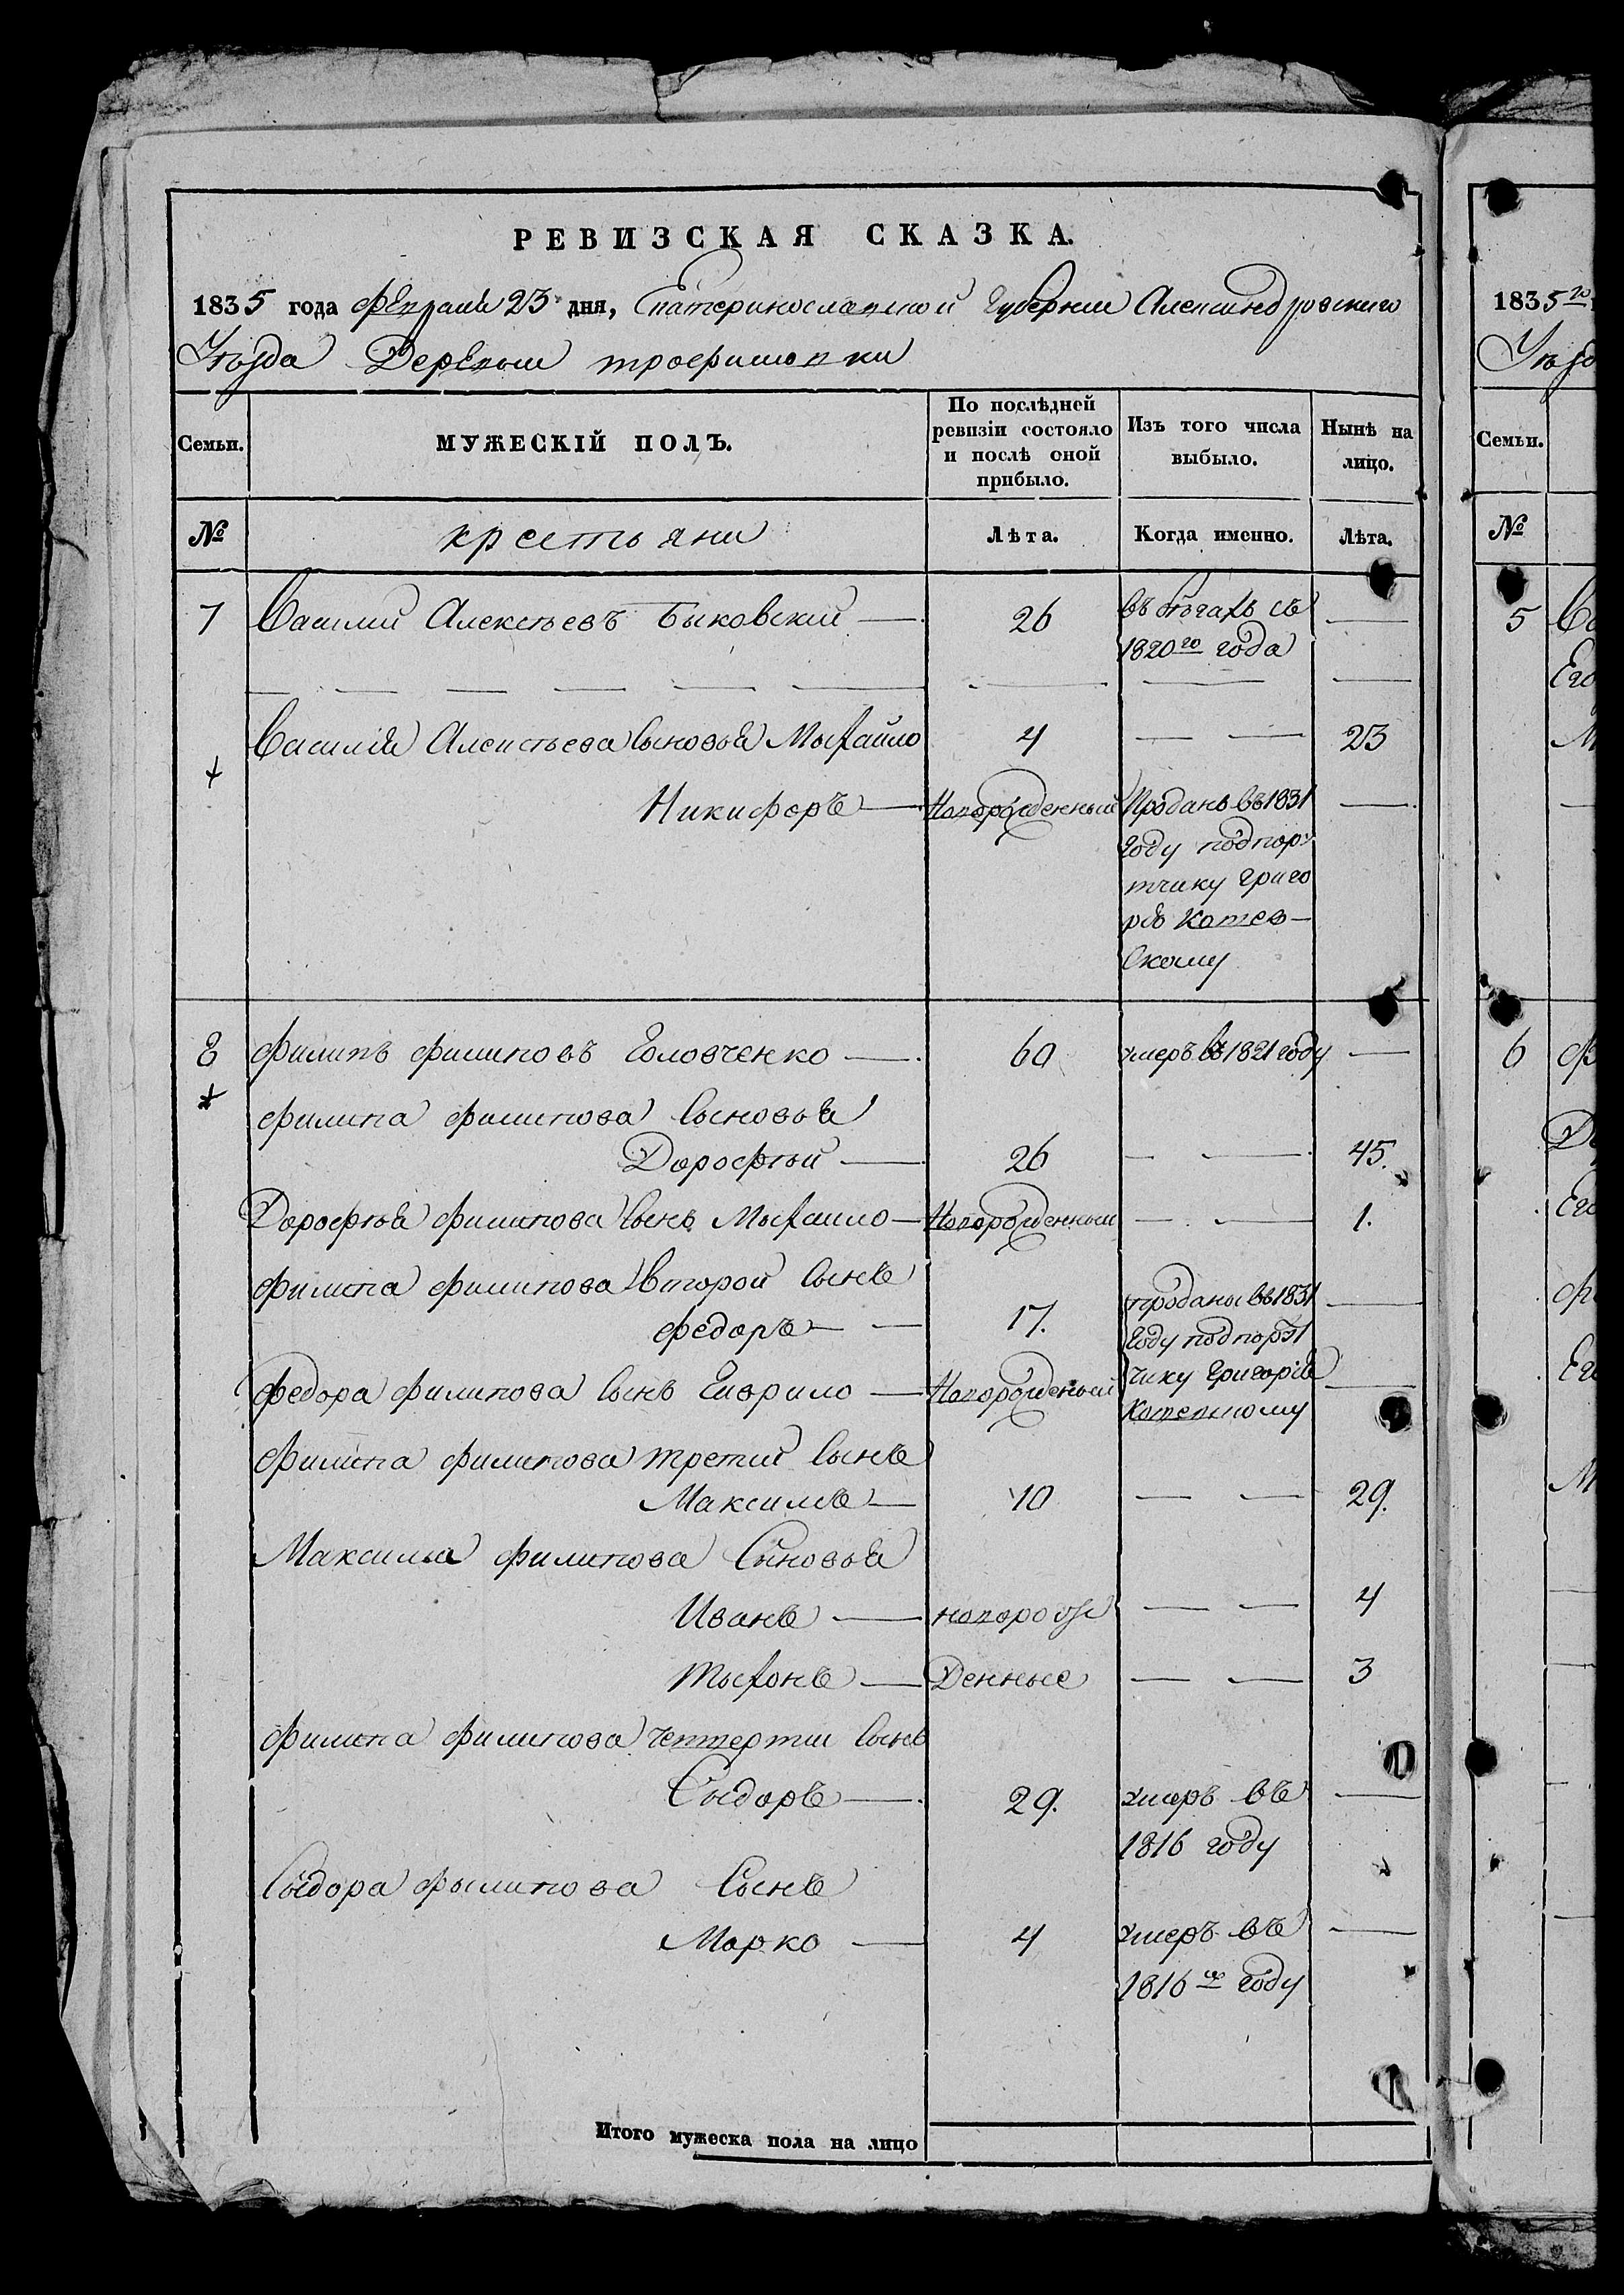 РЕВИЗСКАЯ СКАЗКА.
1835 года Февраля 23 дня, Екатеринославской Губернии Александровского
Уѣзда Деревни трофимовки
Семьи. МУЖЕСКІЙ ПОЛЪ. По послѣдней ревизіи состояло и послѣ оной прибыло. Изъ того числа выбыло. Нынѣ на лицо.
№ крестьяни Лѣта. Когда именно. Лѣта.
7 Василий Алексѣевъ Быковский — 26 въ бѣгахъ съ —
1820го года
Василия Алексѣева сыновья Мыхайло 4 — — 23
Никифоръ — Новорожденный Проданъ въ 1831 —
году подпор
тчику григо
рію Котев-
скому
8 Филипъ Филиповъ Головченко — 60 умеръ въ 1821 году —
Филипа Филипова Сыновья
Дорофѣй — 26 — — 45.
Дорофѣя Филипова сынъ Мыхайло — Новорожденный — — 1.
Филипа Филипова второй сынъ
Федоръ — — 17. проданы въ 1831 —
году подпору
Федора Филипова сынъ Гаврило — Новорожденый чику Григорію —
Котевскому
Филипа Филипова третий сынъ
Максимъ — 10 — — 29.
Максима Филипова Сыновья
Иванъ — новорож — — 4
Тыхонъ — Денные — — 3
Филипа Филипова четвертий сынъ
Сыдоръ — 29. умеръ въ —
1816 году
Сыдора Филипова Сынъ
Марко — 4 умеръ въ —
1816м году
Итого мужеска пола на лицо
1835го
Уѣзд
Семьи.
№
5 Ва
Его
М
6 Ф
До
Его
Фе
Его
М